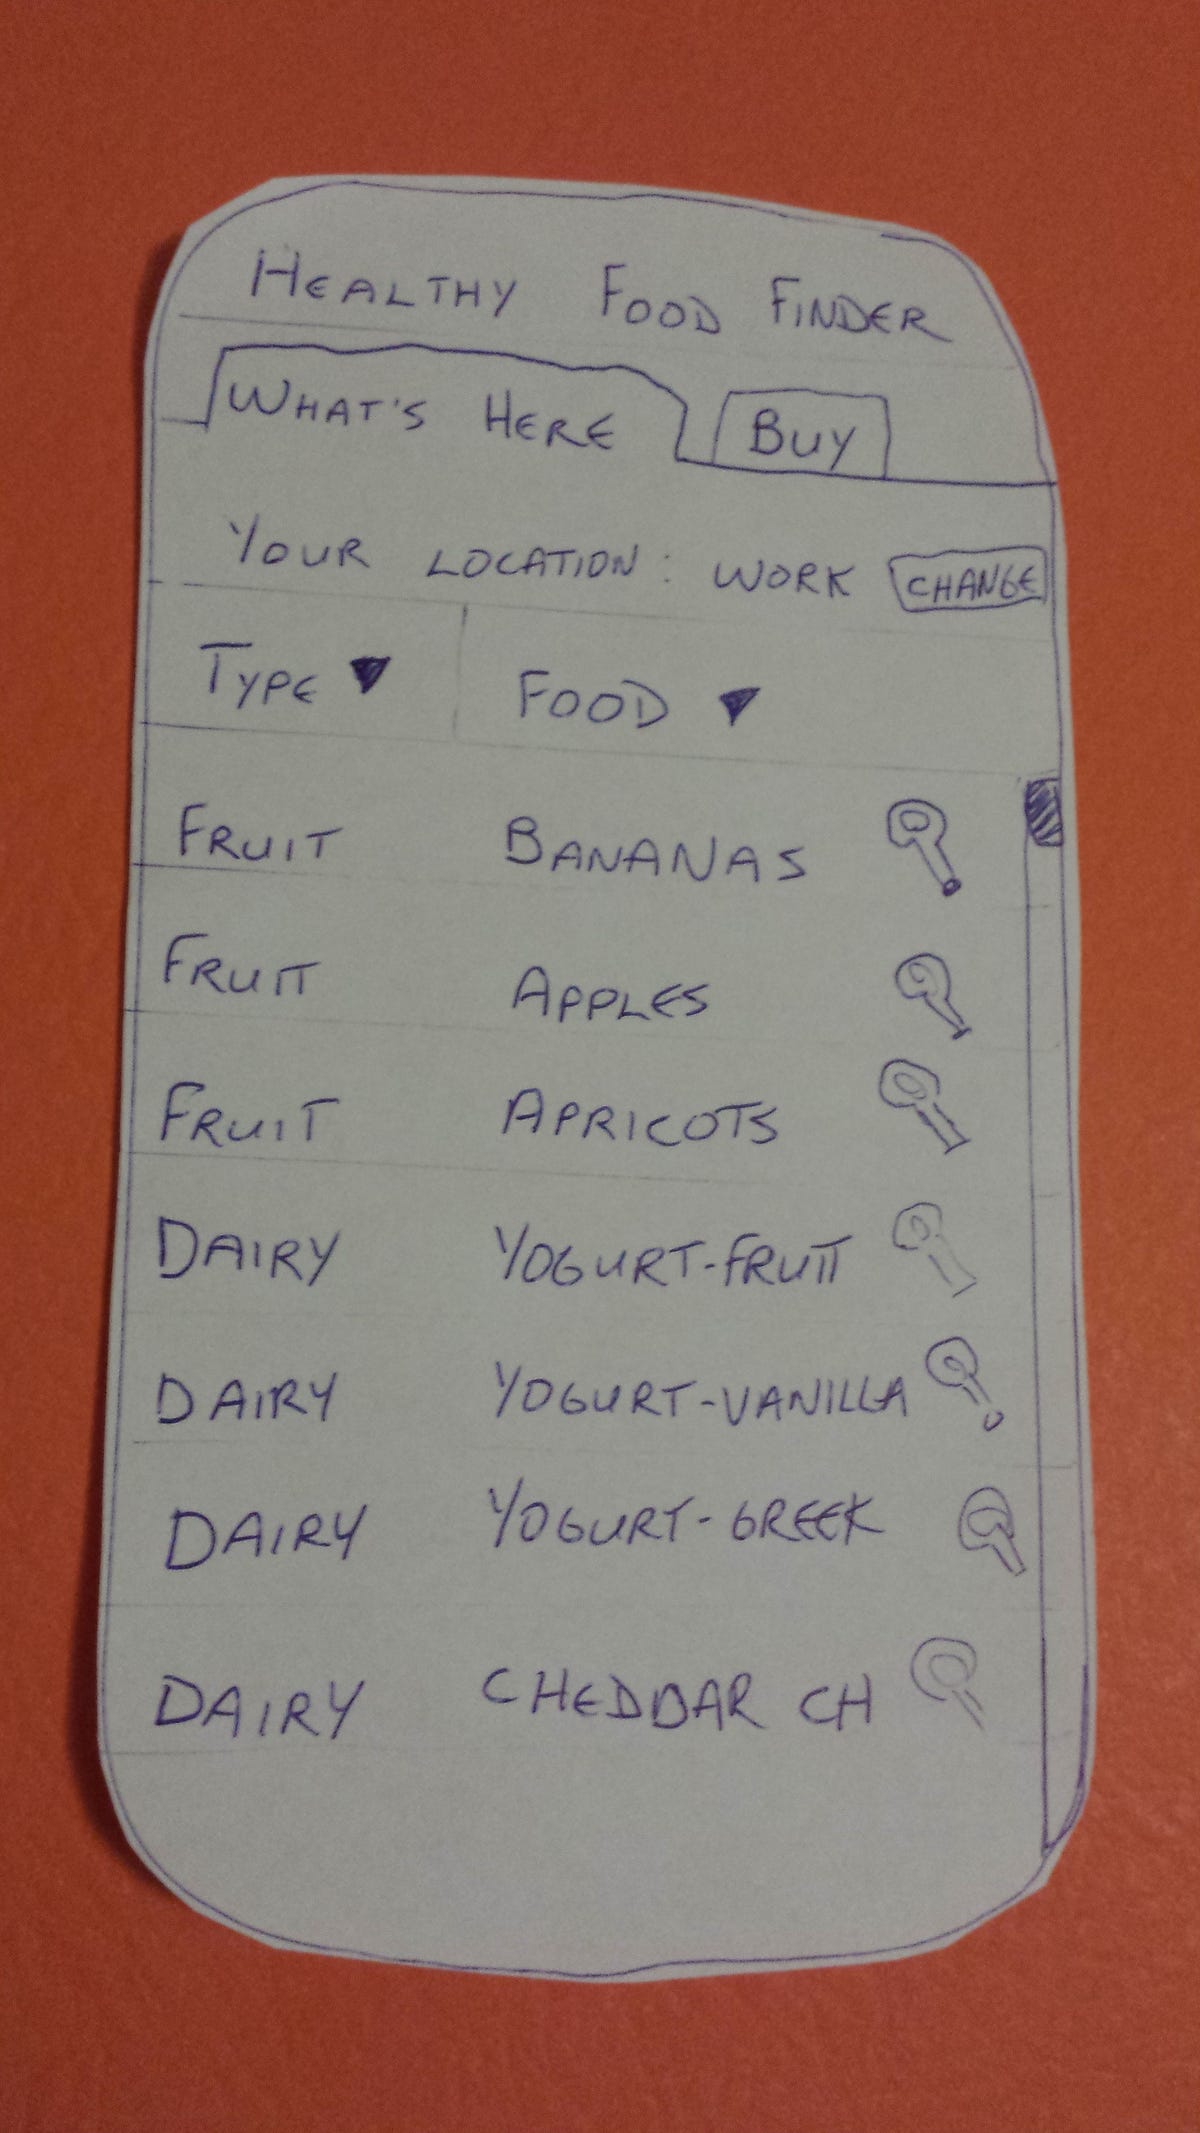 HEALTHY FOOD FINDER
WHAT'S HERE BUY
YOUR LOCATION: WORK CHANGE
TYPE ▼ FOOD ▼
FRUIT BANANAS
FRUIT APPLES
FRUIT APRICOTS
DAIRY YOGURT-FRUIT
DAIRY YOGURT-VANILLA
DAIRY YOGURT-GREEK
DAIRY CHEDDAR CH